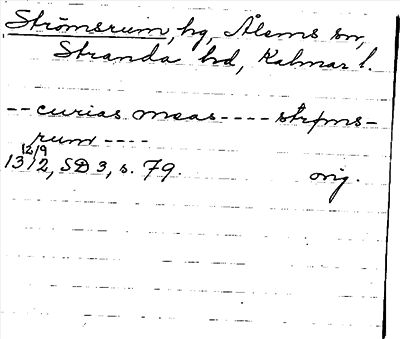 Strömsrum, hg, Ålems sn,
Stranda hd, Kalmar l.
-- curias meas ---- strøms-
rum ----
12/9
1312, SD 3, s. 79. orig.